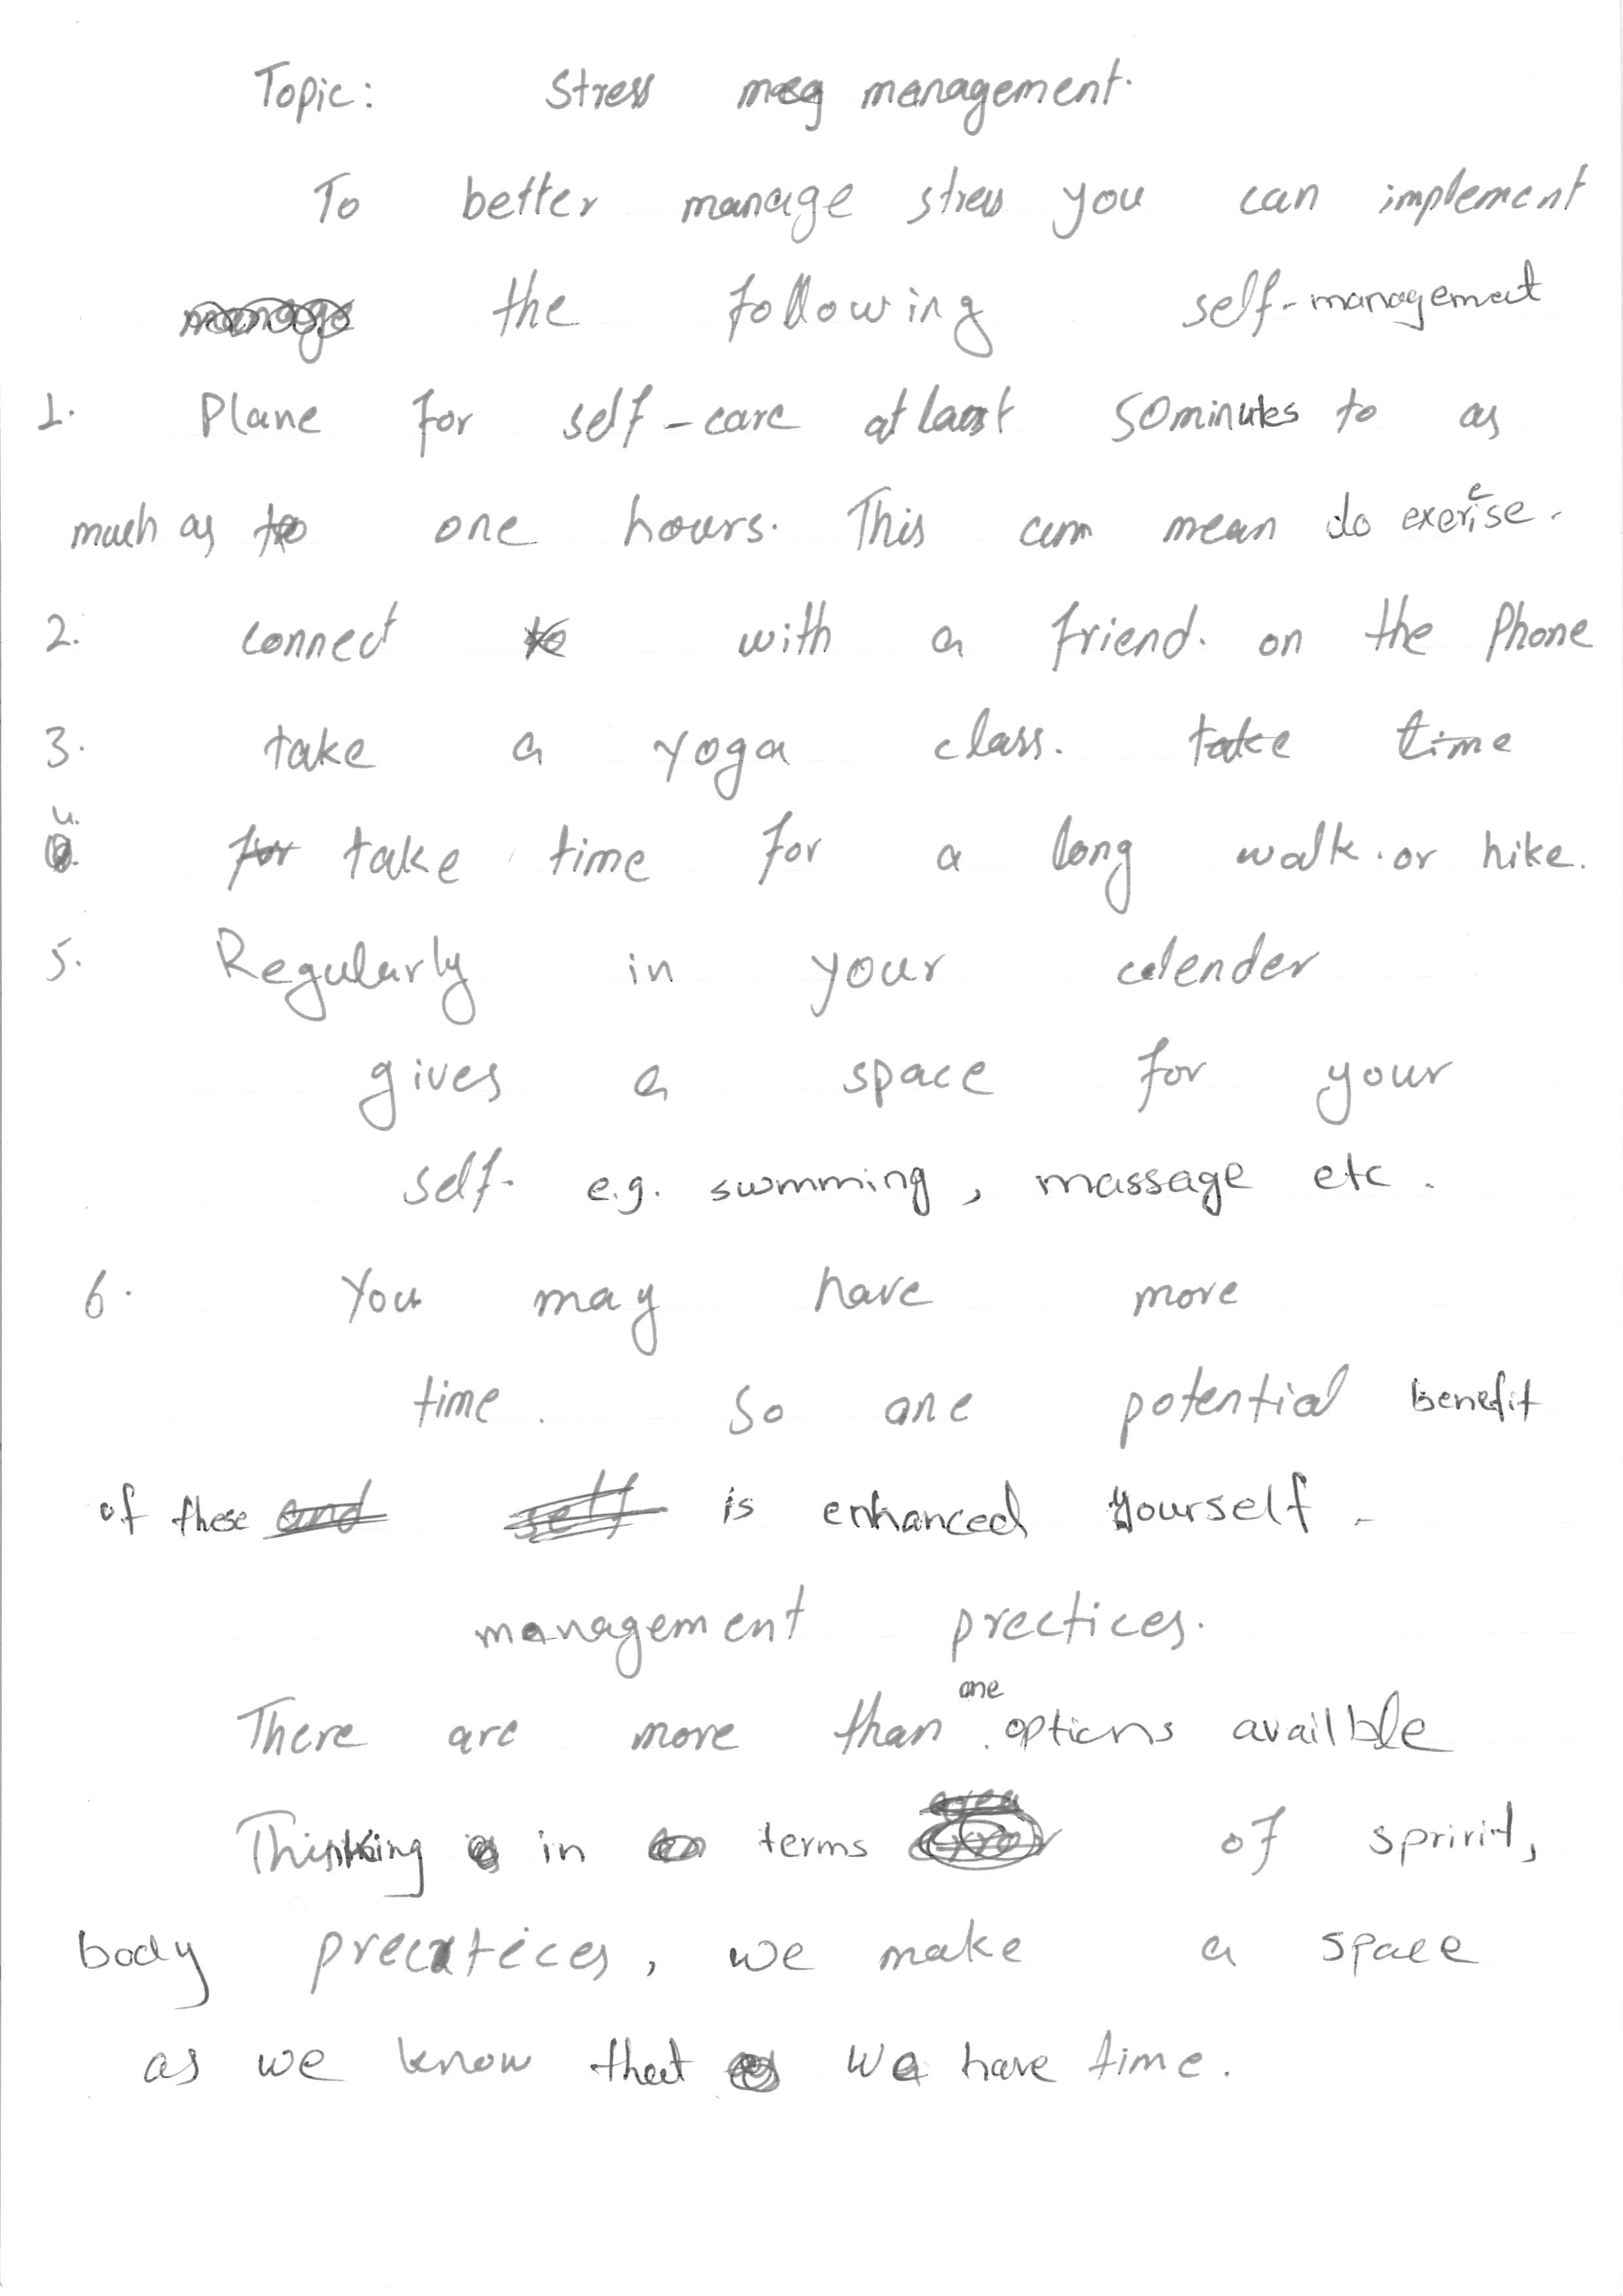 Topic: Stress management.
To better manage stress you can implement
the following self-management
1. Plane for self-care at last 50minutes to as
much as one hours. This can mean do exercise.
2. connect with a friend. on the Phone
3. take a yoga class. take time
4. take time for a long walk. or hike.
5. Regularly in your calender
gives a space for your
self. e.g. swmming, massage etc.
6. You may have more
time. So one potential benefit
of these is enhanced yourself -
management prectices.
There are more than one options availble
Thinking in terms of spririt,
body prectices, we make a space
as we know that we have time.